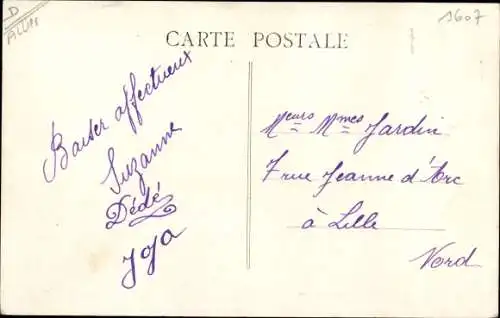 D
ALLIER
3607
CARTE POSTALE
Baiser affectueux
Suzanne
Dédé
Jojo
Meurs Mmes Jardin
7 rue Jeanne d'Arc
à Lille
Nord